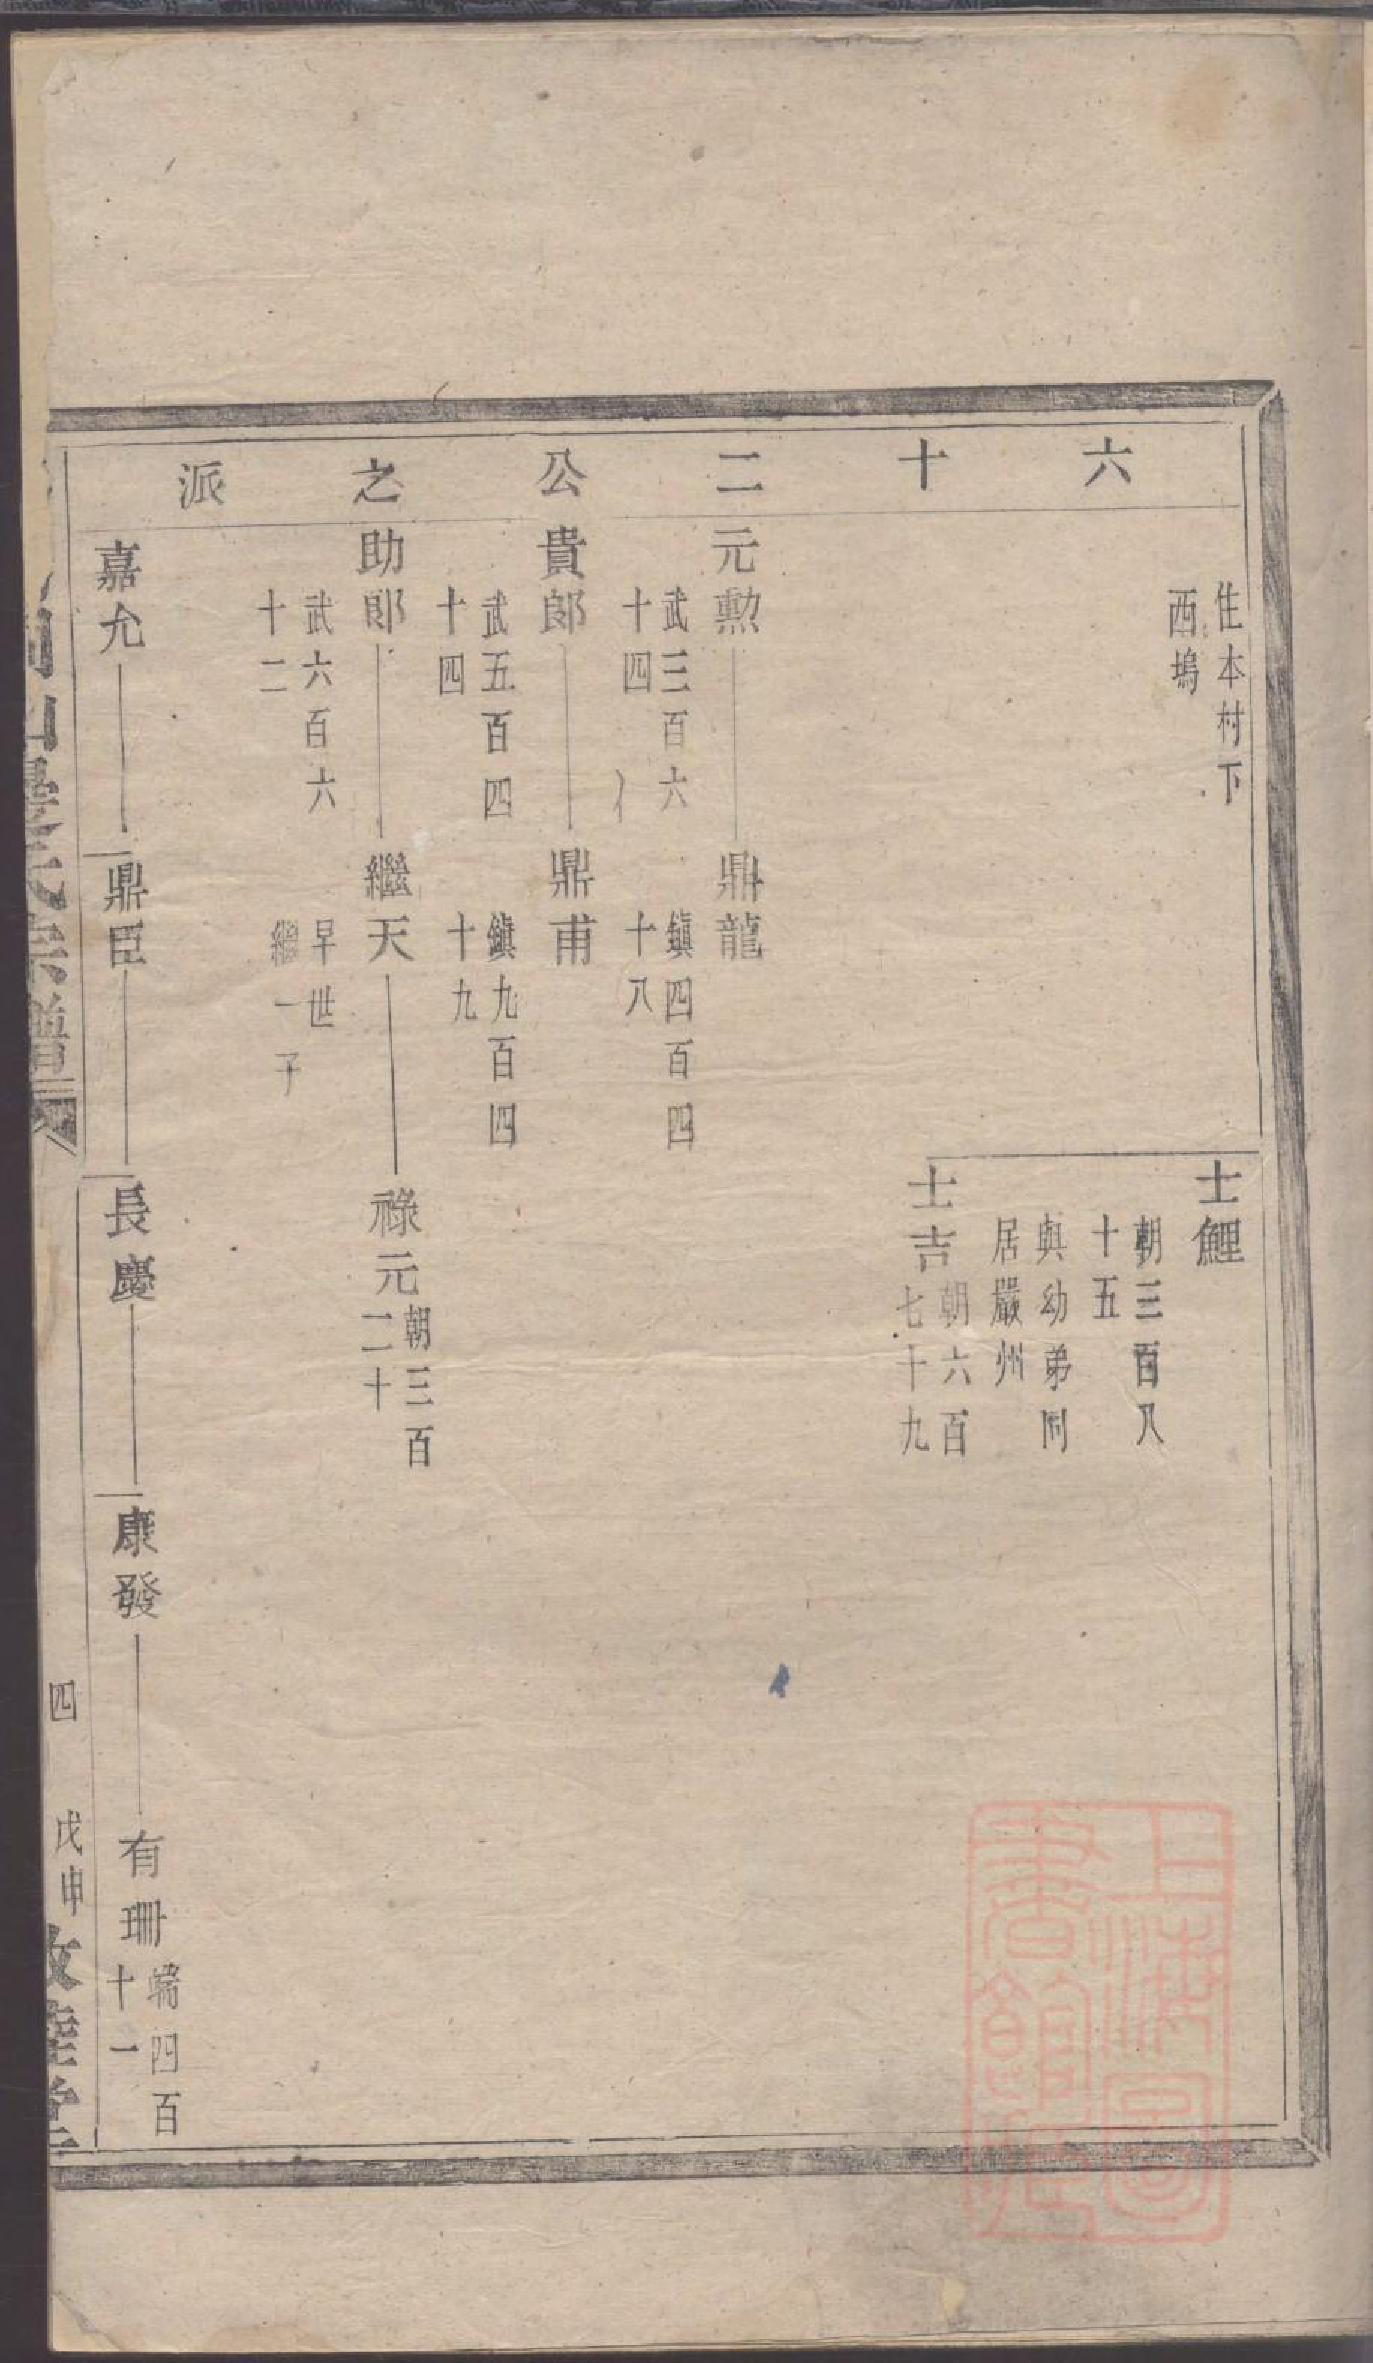 六十二公之派
住本村下
西塢
士鯉
朝三百八
十五
與幼弟同
居嚴州
士吉
朝六百
七十九
元勲
武三百六
十四
鼎龍
鎮四百四
十八
貴郎
武五百四
十四
鼎甫
鎮九百四
十九
助郎
武六百六
十二
繼天
早世
繼一子
祿元
朝三百
二十
嘉允
鼎臣
長慶
康發
有珊
端四百
十一
氏宗譜
四
戊申
上海圖
書館藏